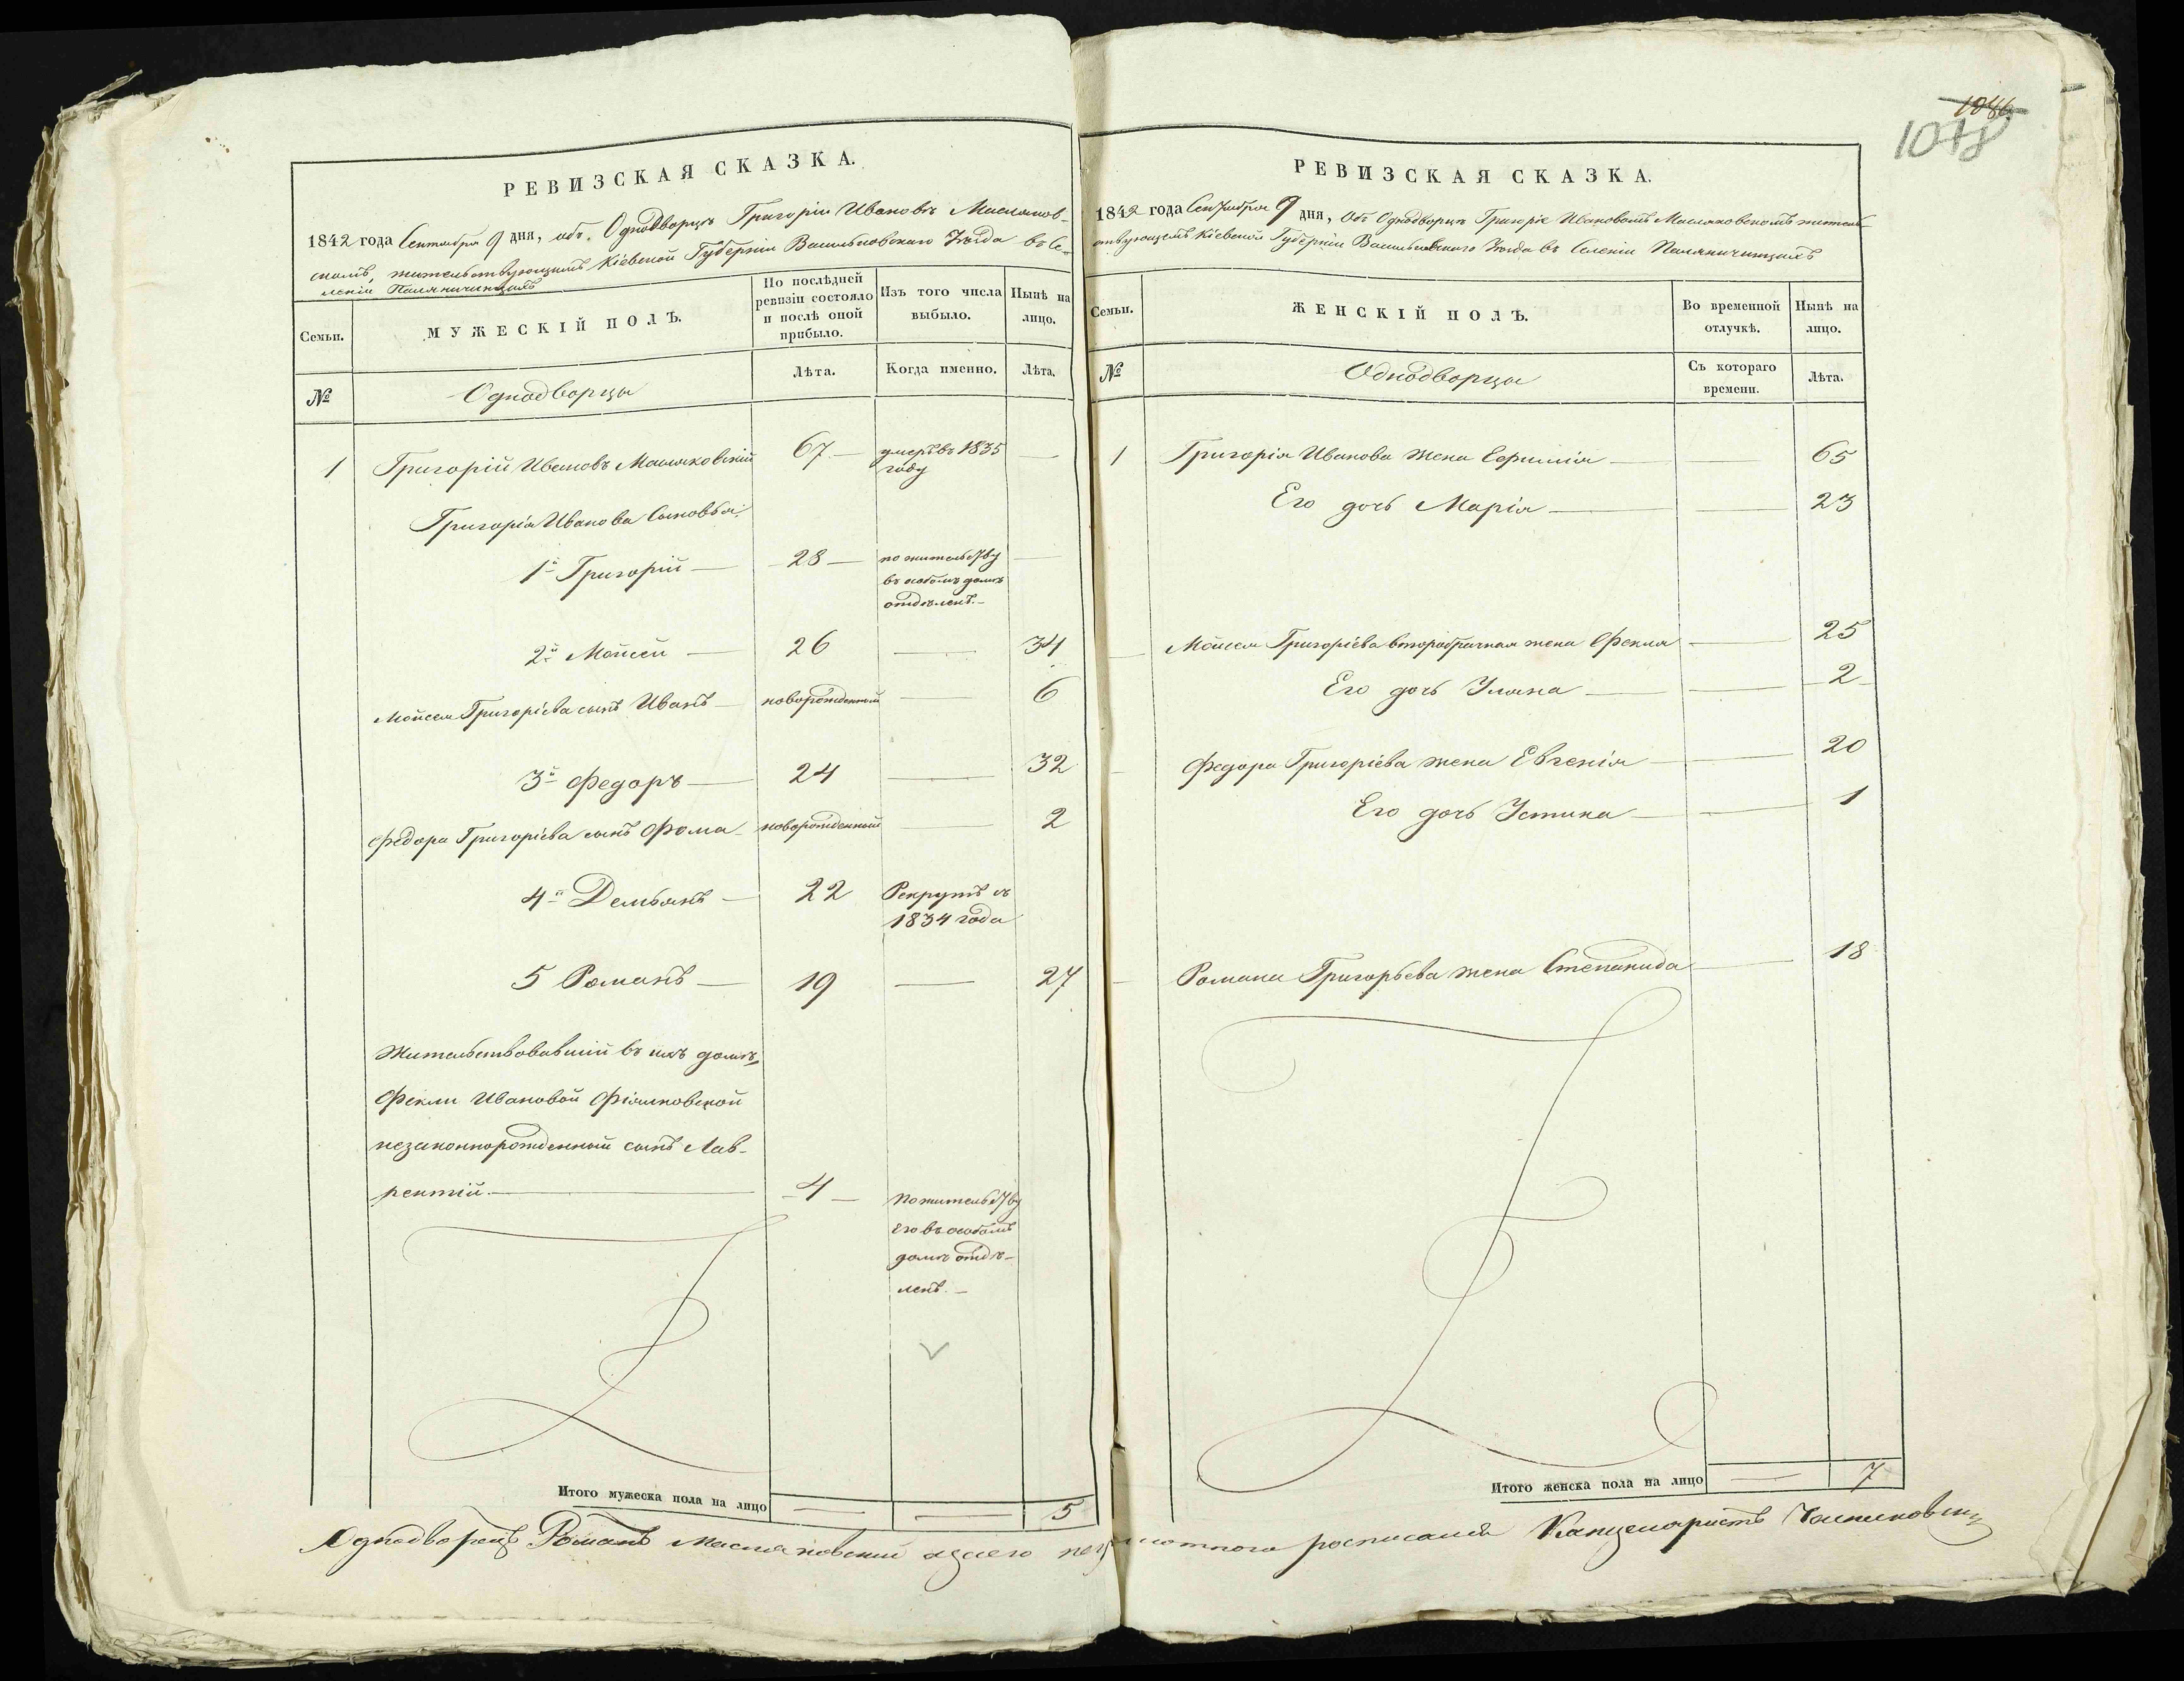 РЕВИЗСКАЯ СКАЗКА.
1842 года Сентября 9 дня, объ Однодворцѣ Григоріи Ивановѣ Масляков-
скомъ, жительствующемъ Кіевской Губерніи Васильковскаго Уѣзда въ Се-
леніи Паляничинцахъ
Семьи.
МУЖЕСКІЙ ПОЛЪ.
По послѣдней
ревизіи состояло
и послѣ оной
прибыло.
Изъ того числа
выбыло.
Нынѣ на
лицо.
№
Однодворцы
Лѣта.
Когда именно.
Лѣта.
1 Григорій Ивановъ Масляковскій 67 умеръ въ 1835
году
Григорія Иванова Сыновья:
1й Григорій 28 по жительству
въ особомъ домѣ
отдѣленъ.
2й Мойсей 26 34
Мойсея Григоріева сынъ Иванъ новорожденный 6
3й Федоръ 24 32
Федора Григоріева сынъ Фома новорожденный 2
4й Демьянъ 22 Рекрутъ съ
1834 года
5 Романъ 19 27
Жительствовавшій въ ихъ домѣ,
Фекли Ивановой Фіялковской
незаконнорожденный сынъ Лав-
рентій 4 По жительству
Его въ особомъ
домѣ отдѣ-
ленъ.
Итого мужеска пола на лицо 5
1086
1078
РЕВИЗСКАЯ СКАЗКА.
1842 года Сентября 9 дня, Объ Однодворцѣ Григоріе Ивановомъ Масляковскомъ житель-
ствующемъ Кіевской Губерніи Васильковскаго Уѣзда въ Селеніи Паляничинцахъ
Семьи.
ЖЕНСКІЙ ПОЛЪ.
Во временной
отлучкѣ.
Нынѣ на
лицо.
№
Однодворцы
Съ котораго
времени.
Лѣта.
1 Григорія Иванова жена 65
Его дочь Марія 23
Мойсея Григоріева второбрачная жена Фекла 25
Его дочь Уляна 2
Федора Григоріева жена Евгенія 20
Его дочь Устина 1
Романа Григорьева жена Степанида 18
Итого женска пола на лицо 7
Однодворецъ Романъ Масляковскій росписался Канцеляристъ